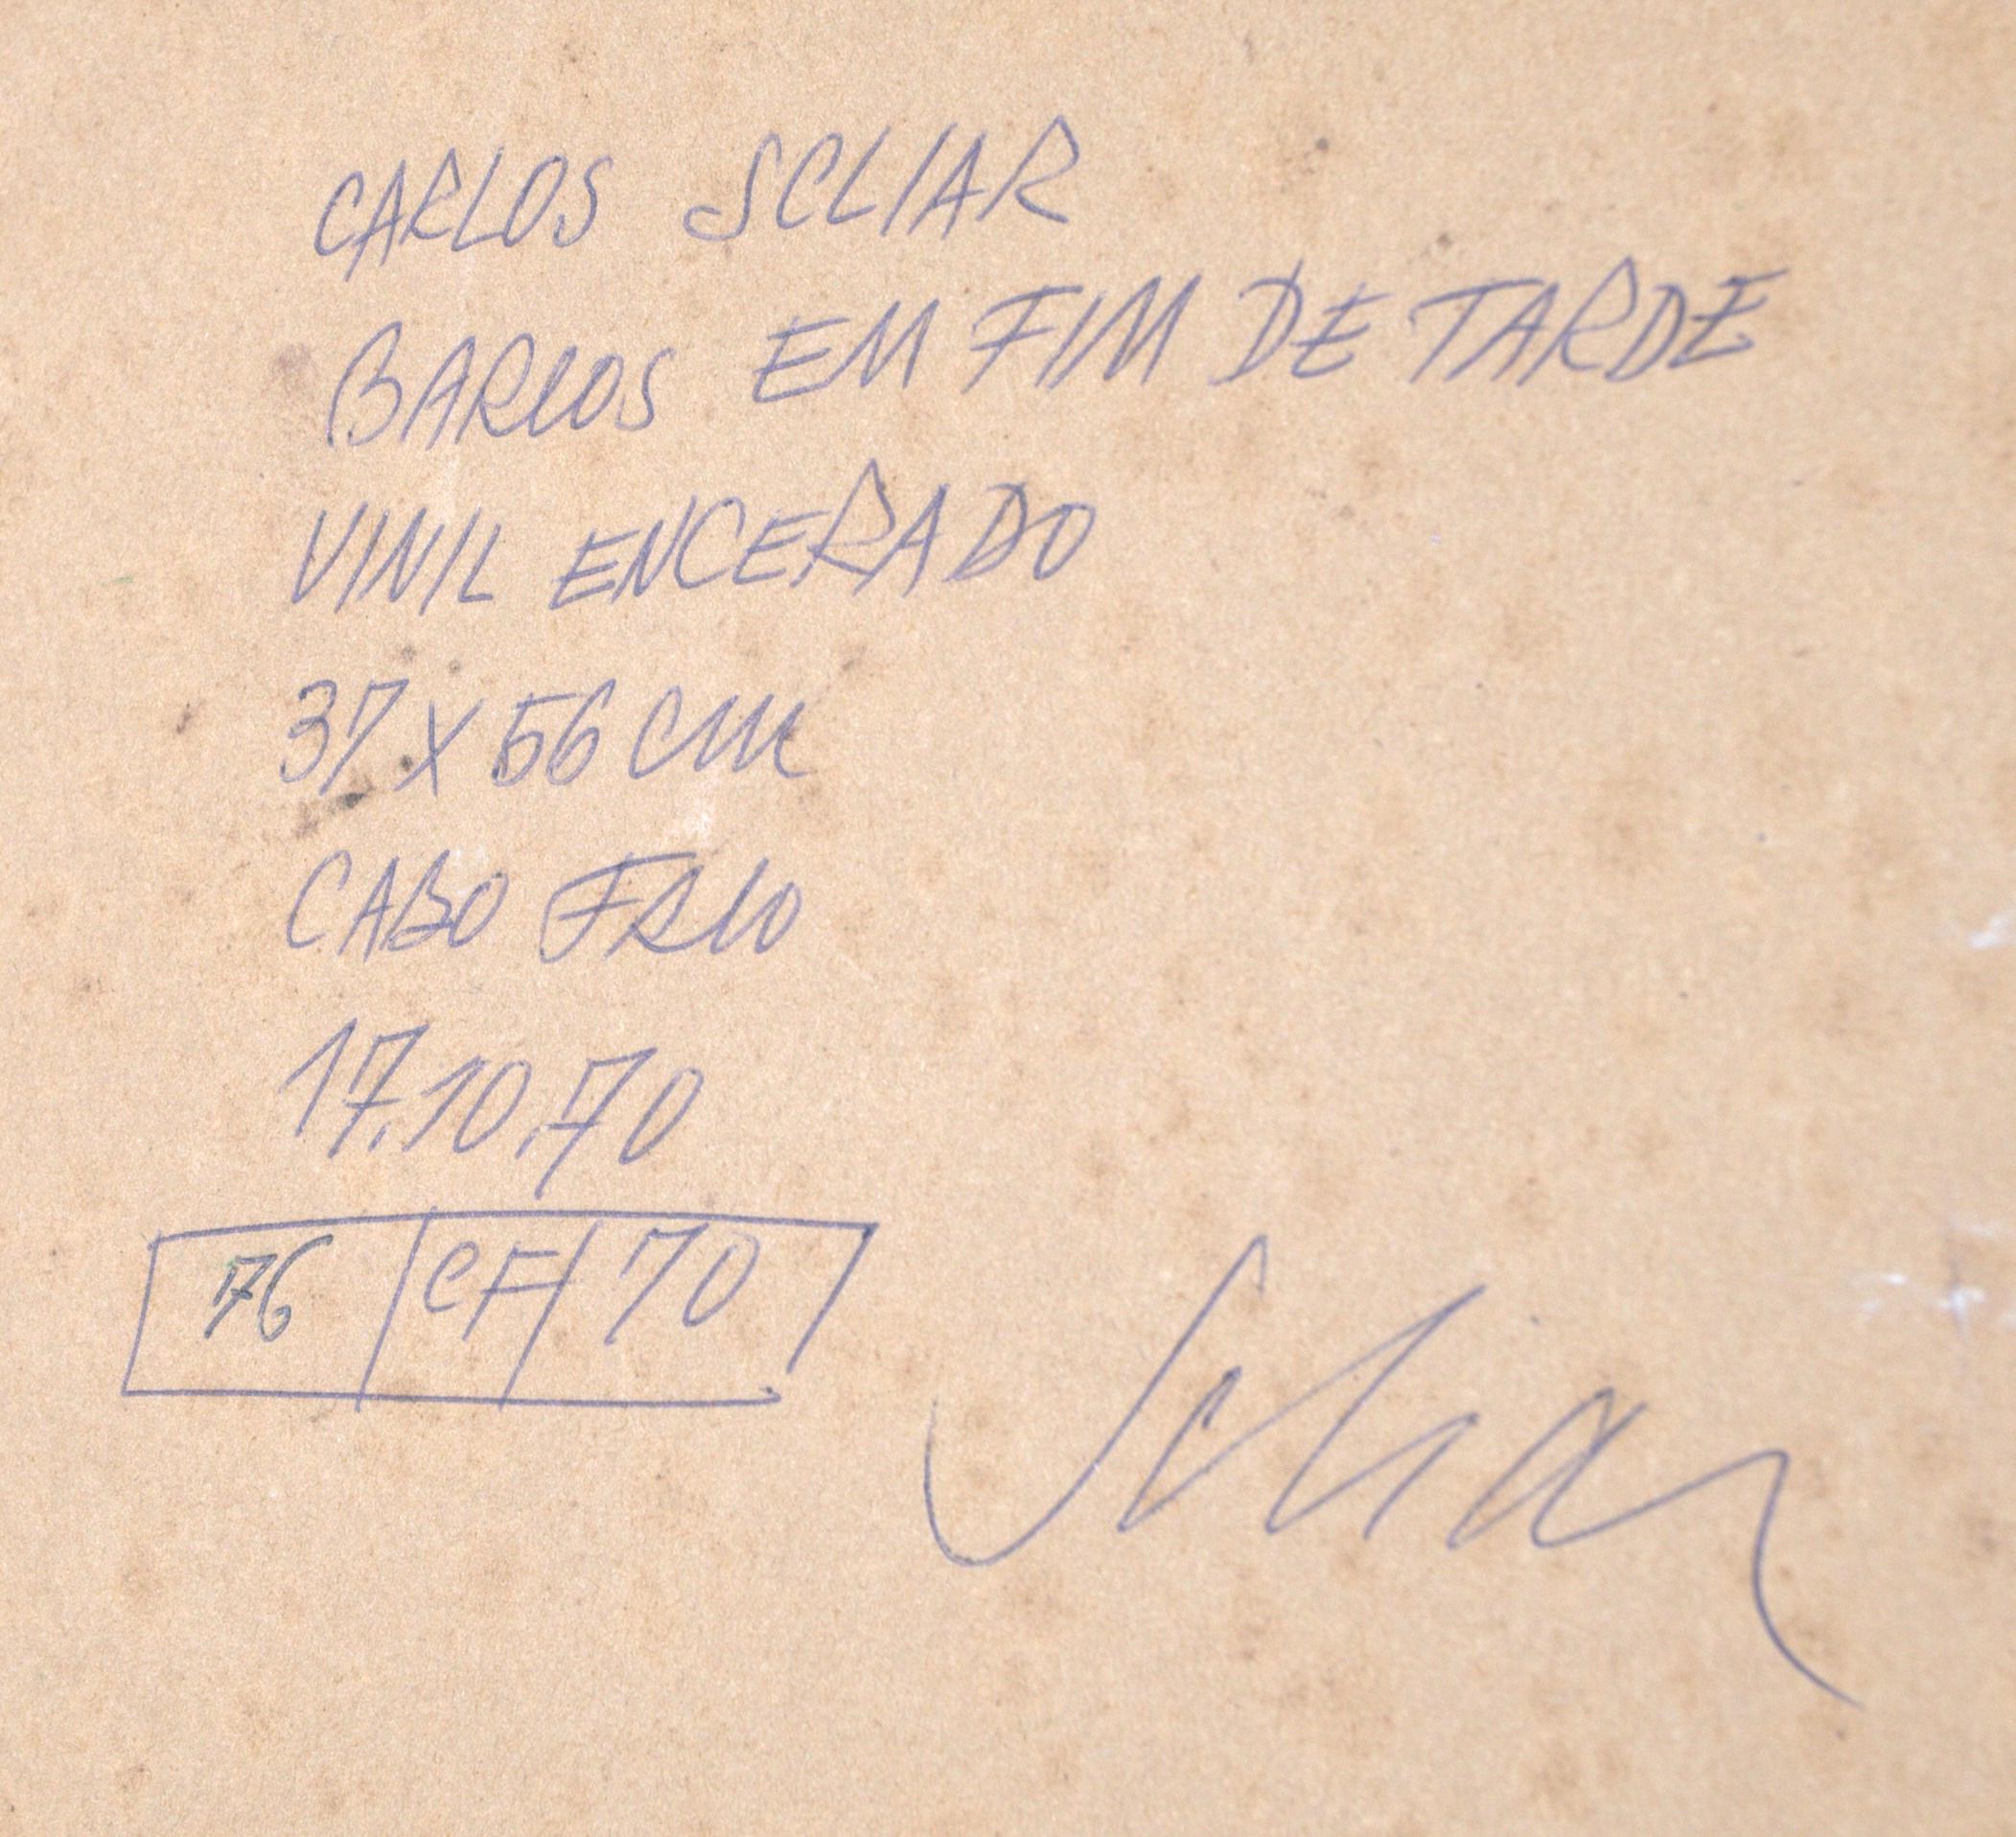 CARLOS SCLIAR
BARCOS EM FIM DE TARDE
VINIL ENCERADO
37 X 56 cm
CABO FRIO
17.10.70
76 CF 70
Scliar